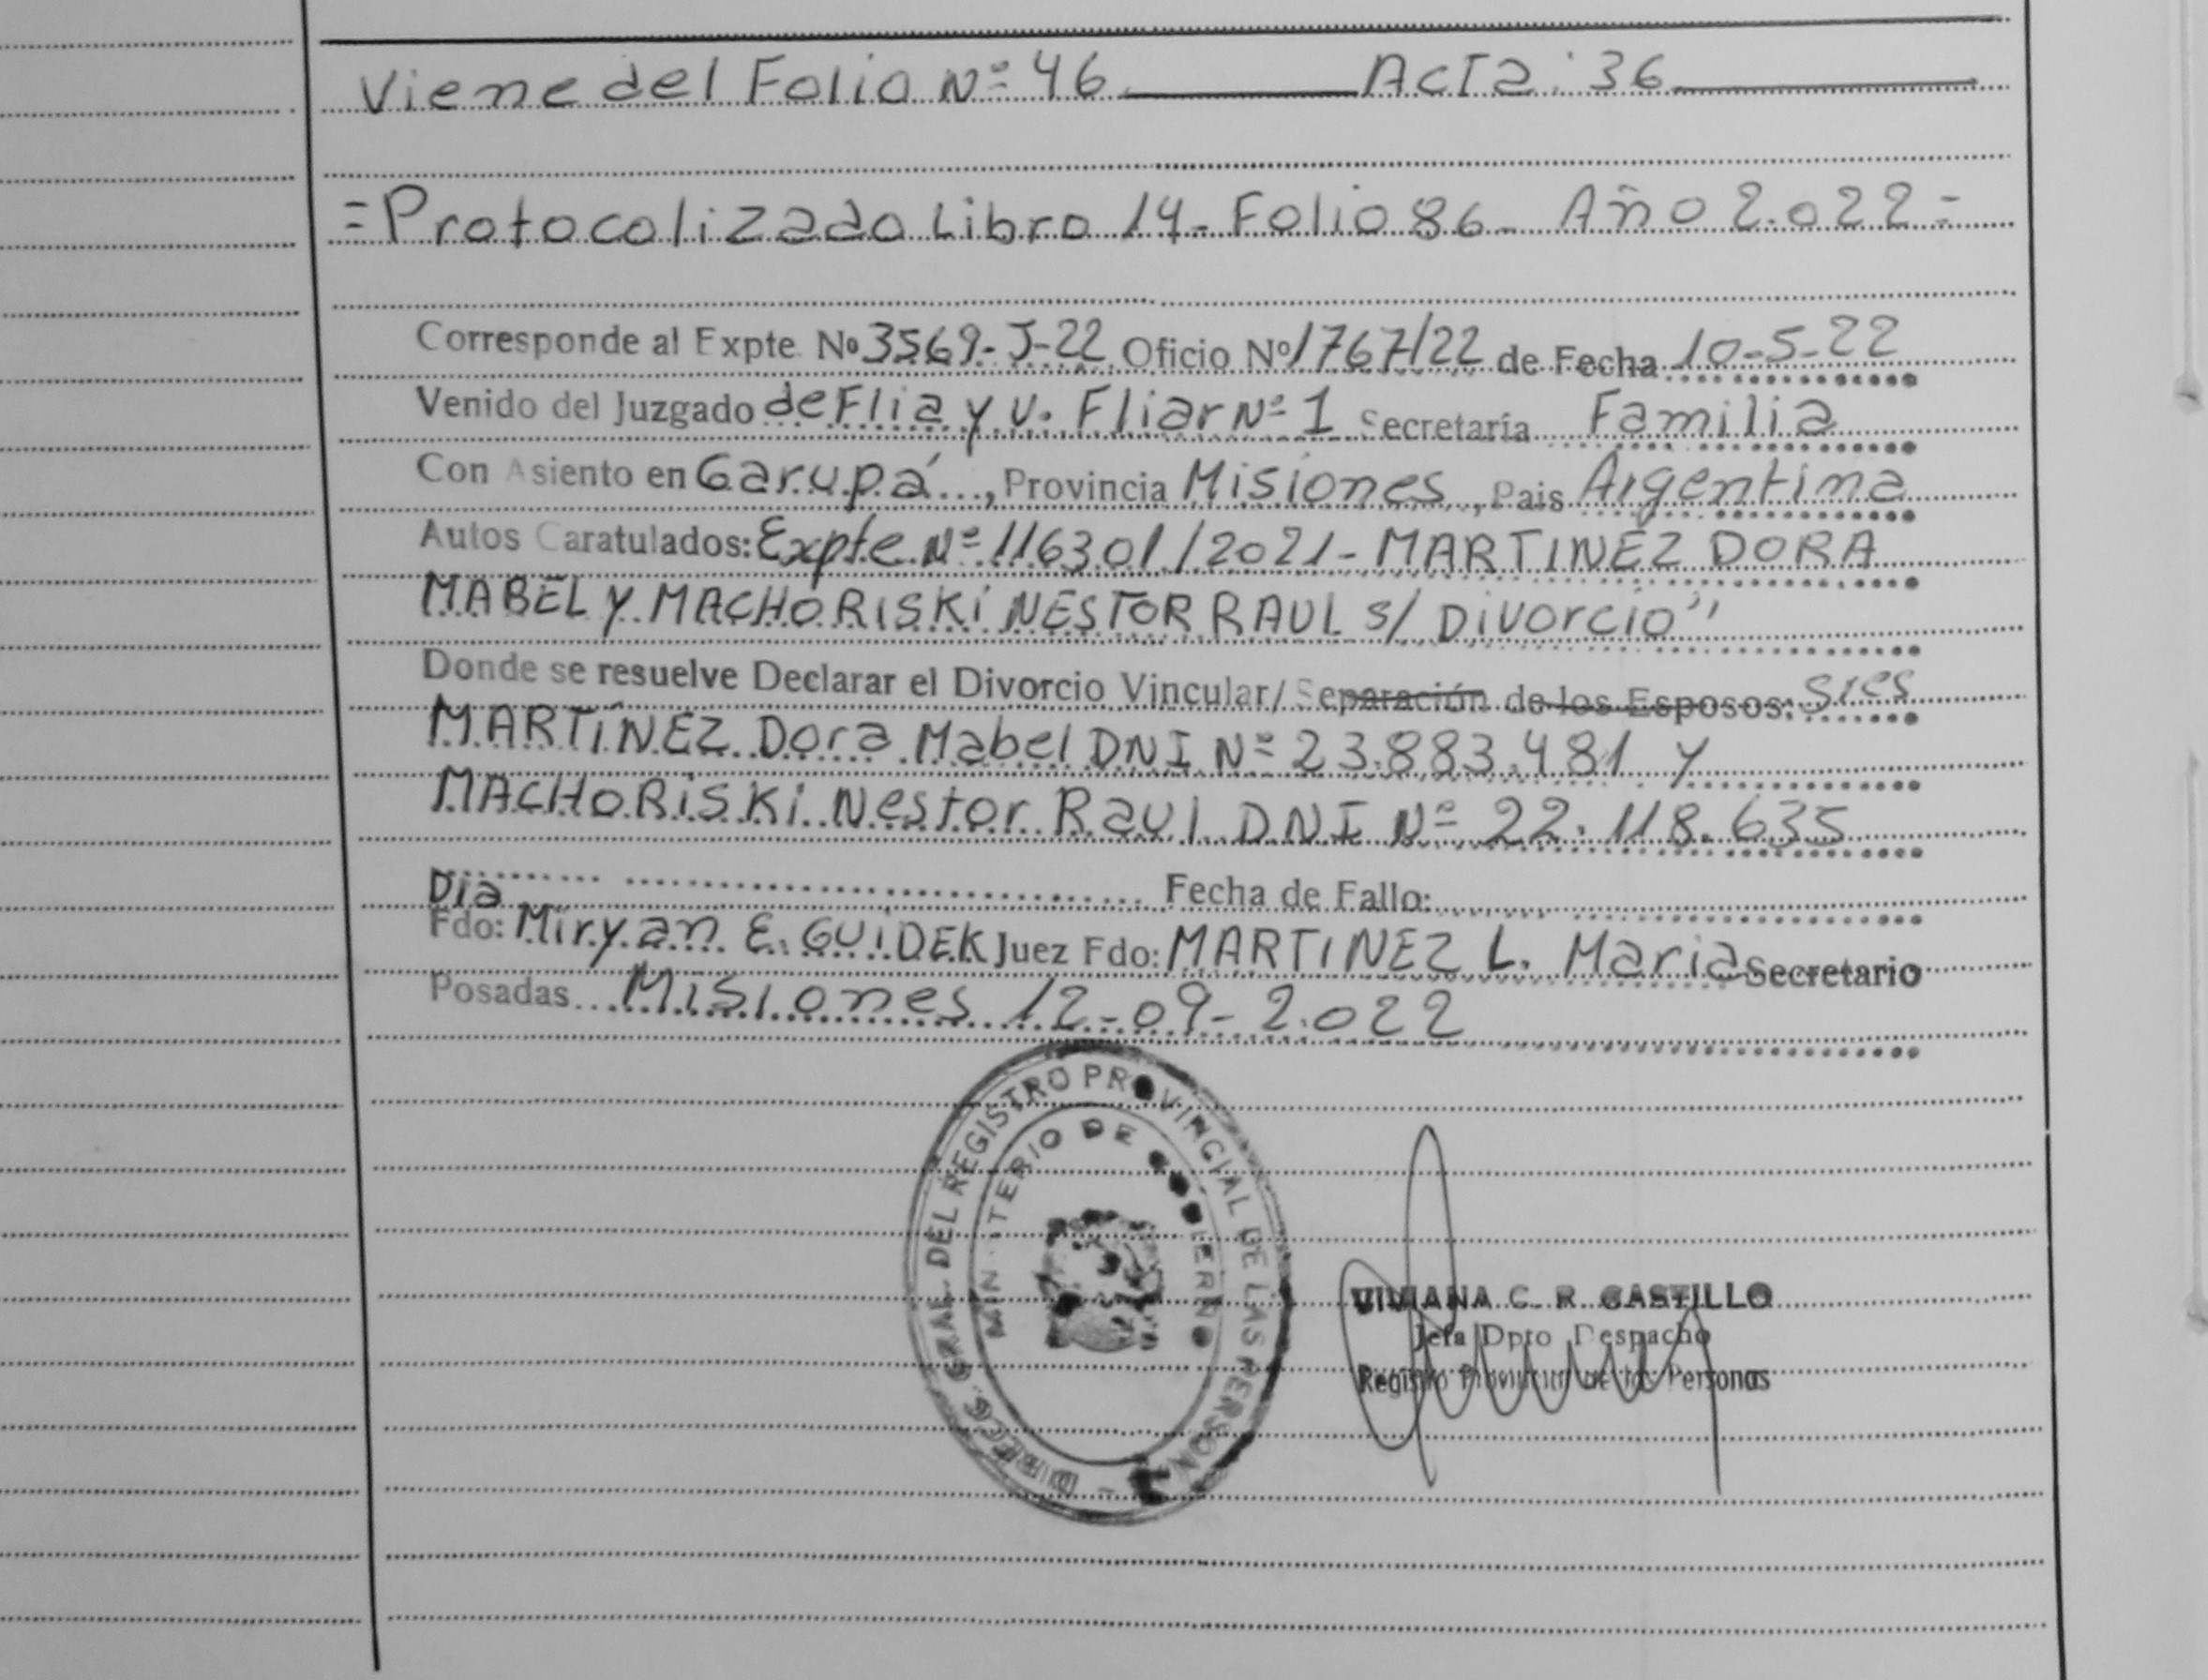 Viene del Folio Nº 46 Acta: 36
=Protocolizado Libro 14- Folio 86- Año 2.022=
Corresponde al Expte Nº 3569-J-22 Oficio Nº 1767/22 de Fecha 10-5-22
Venido del Juzgado de Flia y V. Fliar Nº 1 Secretaría Familia
Con Asiento en Garupá, Provincia Misiones, Pais Argentina
Autos Caratulados: Expte Nº 116301/2021- MARTINEZ DORA
MABEL y MACHORISKI NESTOR RAUL s/ Divorcio"
Donde se resuelve Declarar el Divorcio Vincular/ Separación de los Esposos: Sres
MARTÍNEZ Dora Mabel DNI Nº 23.883.481 y
MACHORISKI Nestor Raul DNI Nº 22.118.635
Día Fecha de Fallo:
Fdo: Miryan E. GUIDEK Juez Fdo: MARTINEZ L. Maria Secretario
Posadas Misiones 12-09-2.022
DIREC. GRAL. DEL REGISTRO PROVINCIAL DE LAS PERSONAS
MINISTERIO DE GOBIERNO
VIVIANA C. R. CASTILLO
Jefa Dpto Despacho
Registro Provincial de las Personas